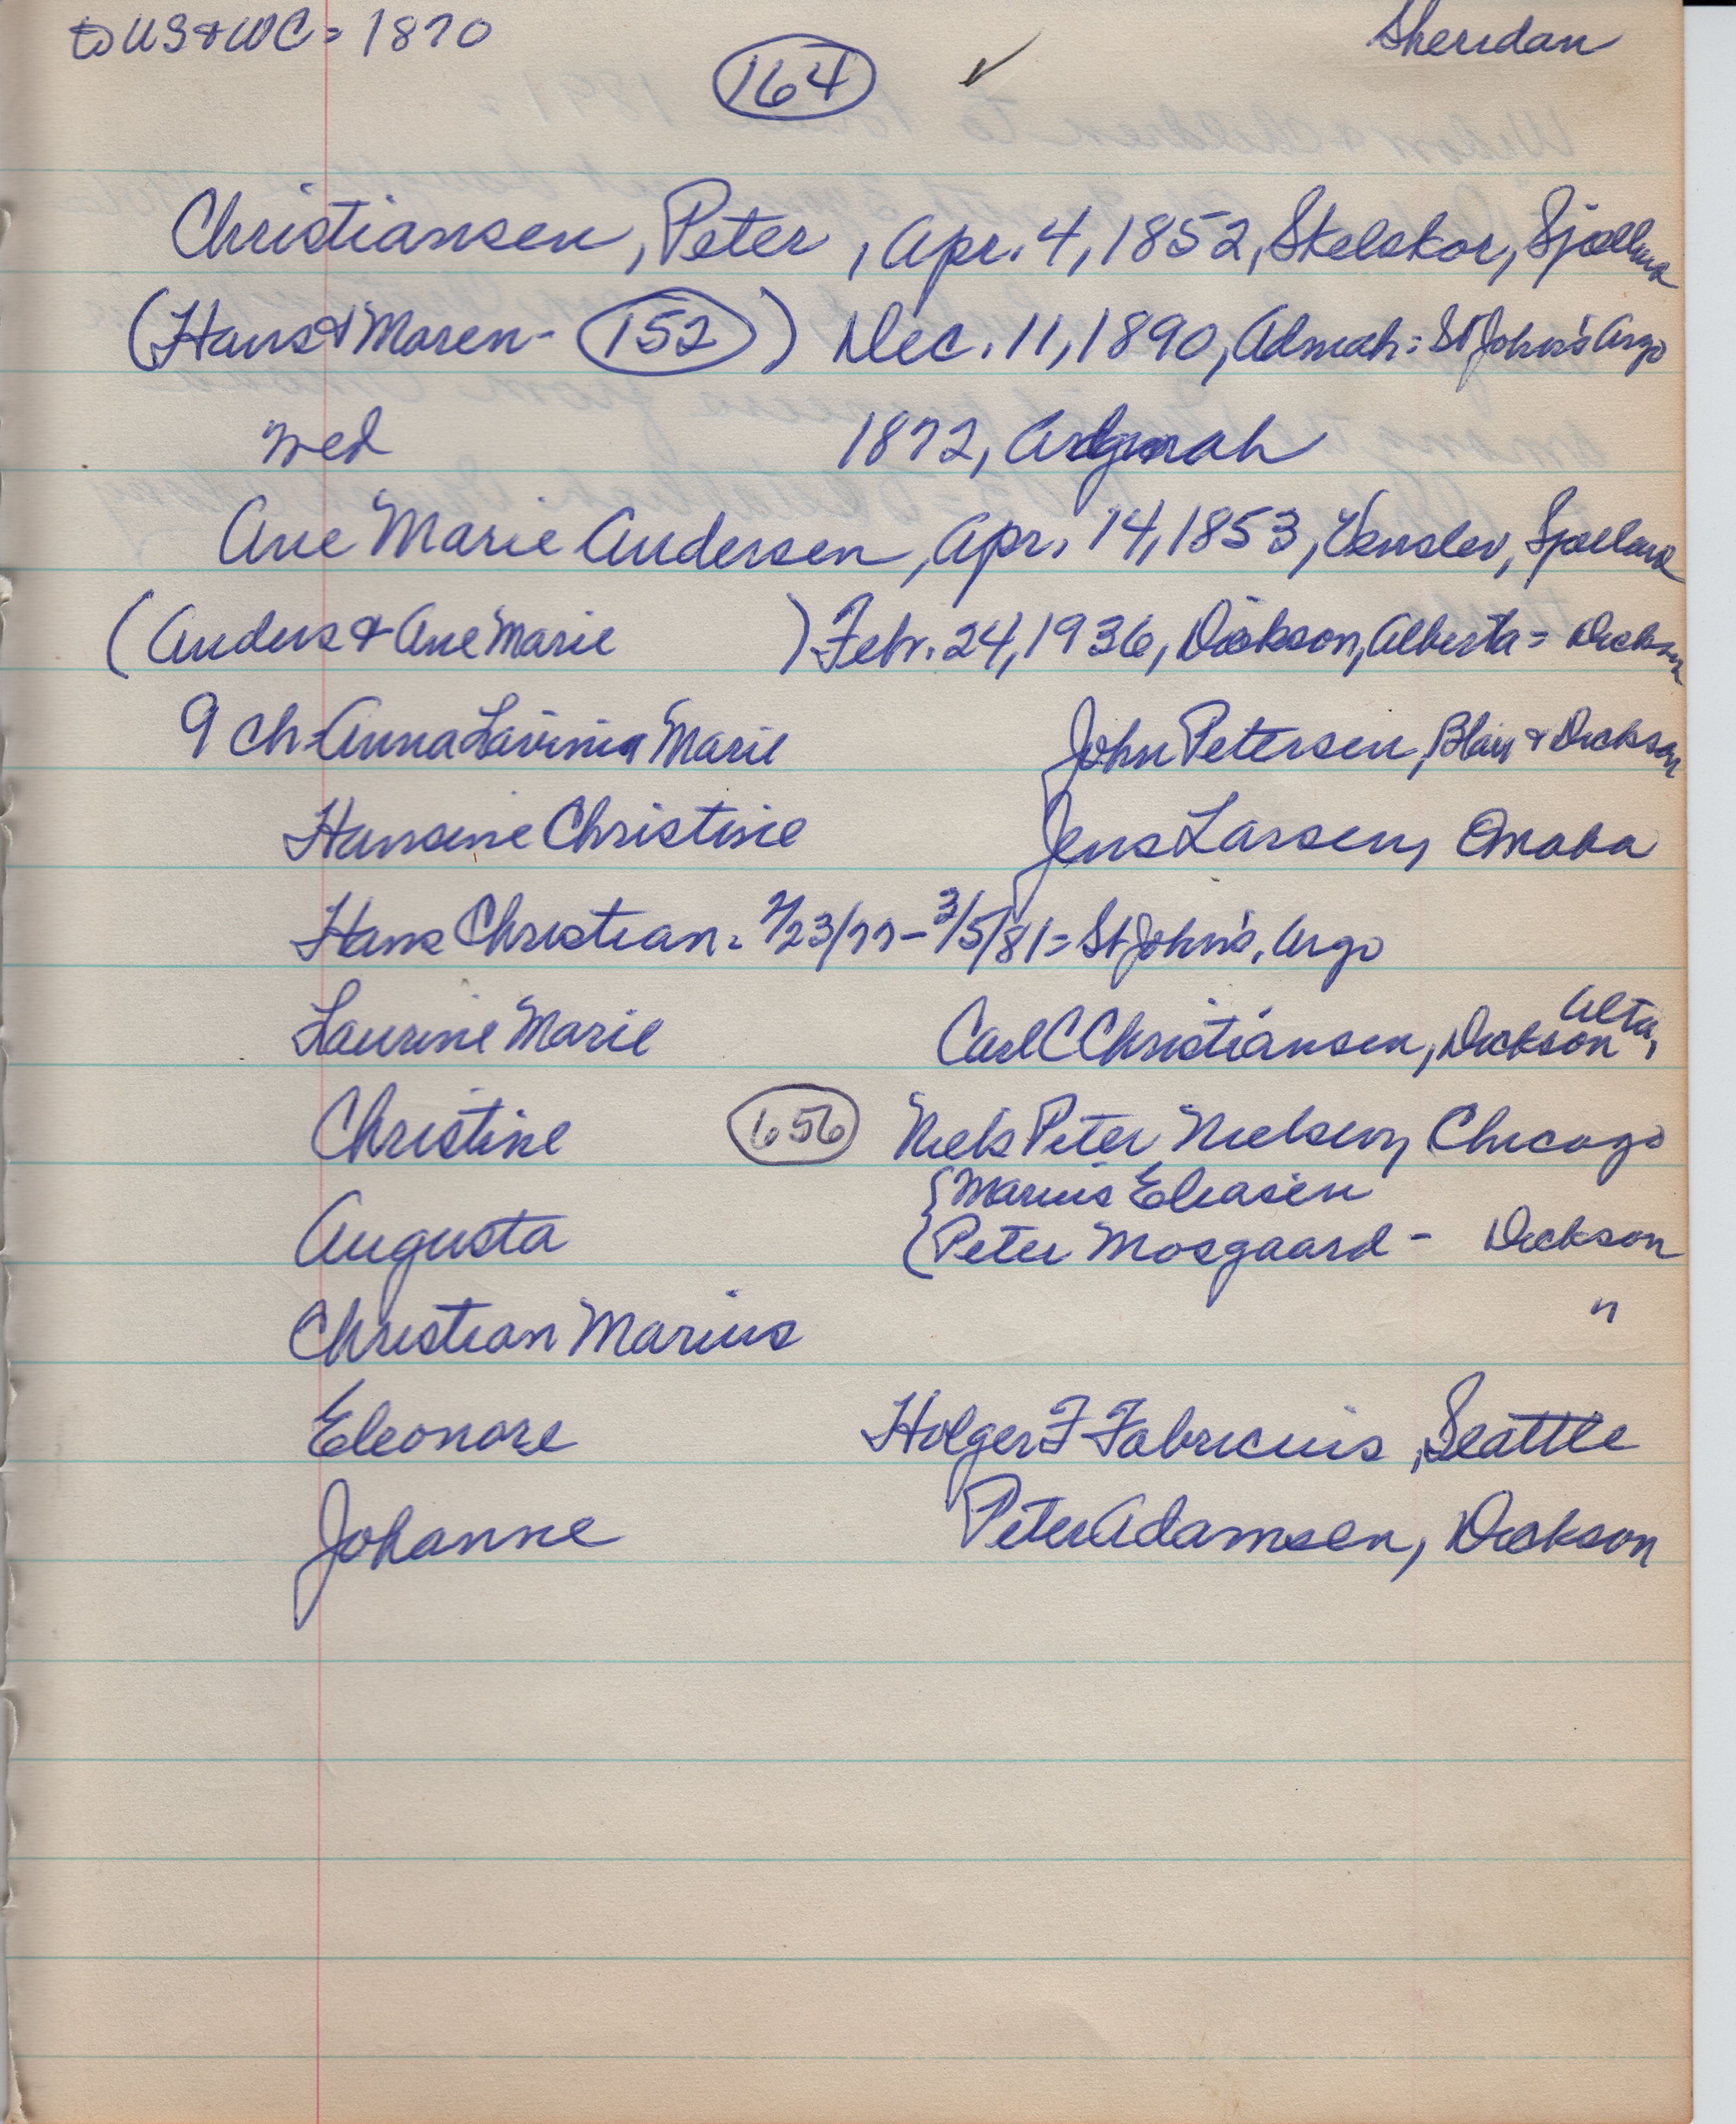 to US & WC = 1870
Sheridan
164 ✓
Christiansen, Peter, Apr. 4, 1852, Skelskor, Sjælland
(Hans & Maren - 152) Dec. 11, 1890, Admah: St John's Argo
wed 1872, Admah
Ane Marie Andersen, Apr. 14, 1853, Venslev, Sjælland
(Anders & Ane Marie ) Febr. 24, 1936, Dickson, Alberta = Dickson
9 ch - Anna Lavinia Marie John Petersen, Blair & Dickson
Hansine Christine Jens Larsen, Omaha
Hans Christian = 7/23/77 - 3/5/81 = St John's, Argo
Alta,
Laurine Marie Carl C Christiansen, Dickson
Christine 656 Niels Peter Nielsen, Chicago
{ Marius Eliasen
Augusta ( Peter Mosgaard - Dickson
Christian Marius "
Eleonore Holger F Fabricius, Seattle
Johanne Peter Adamsen, Dickson